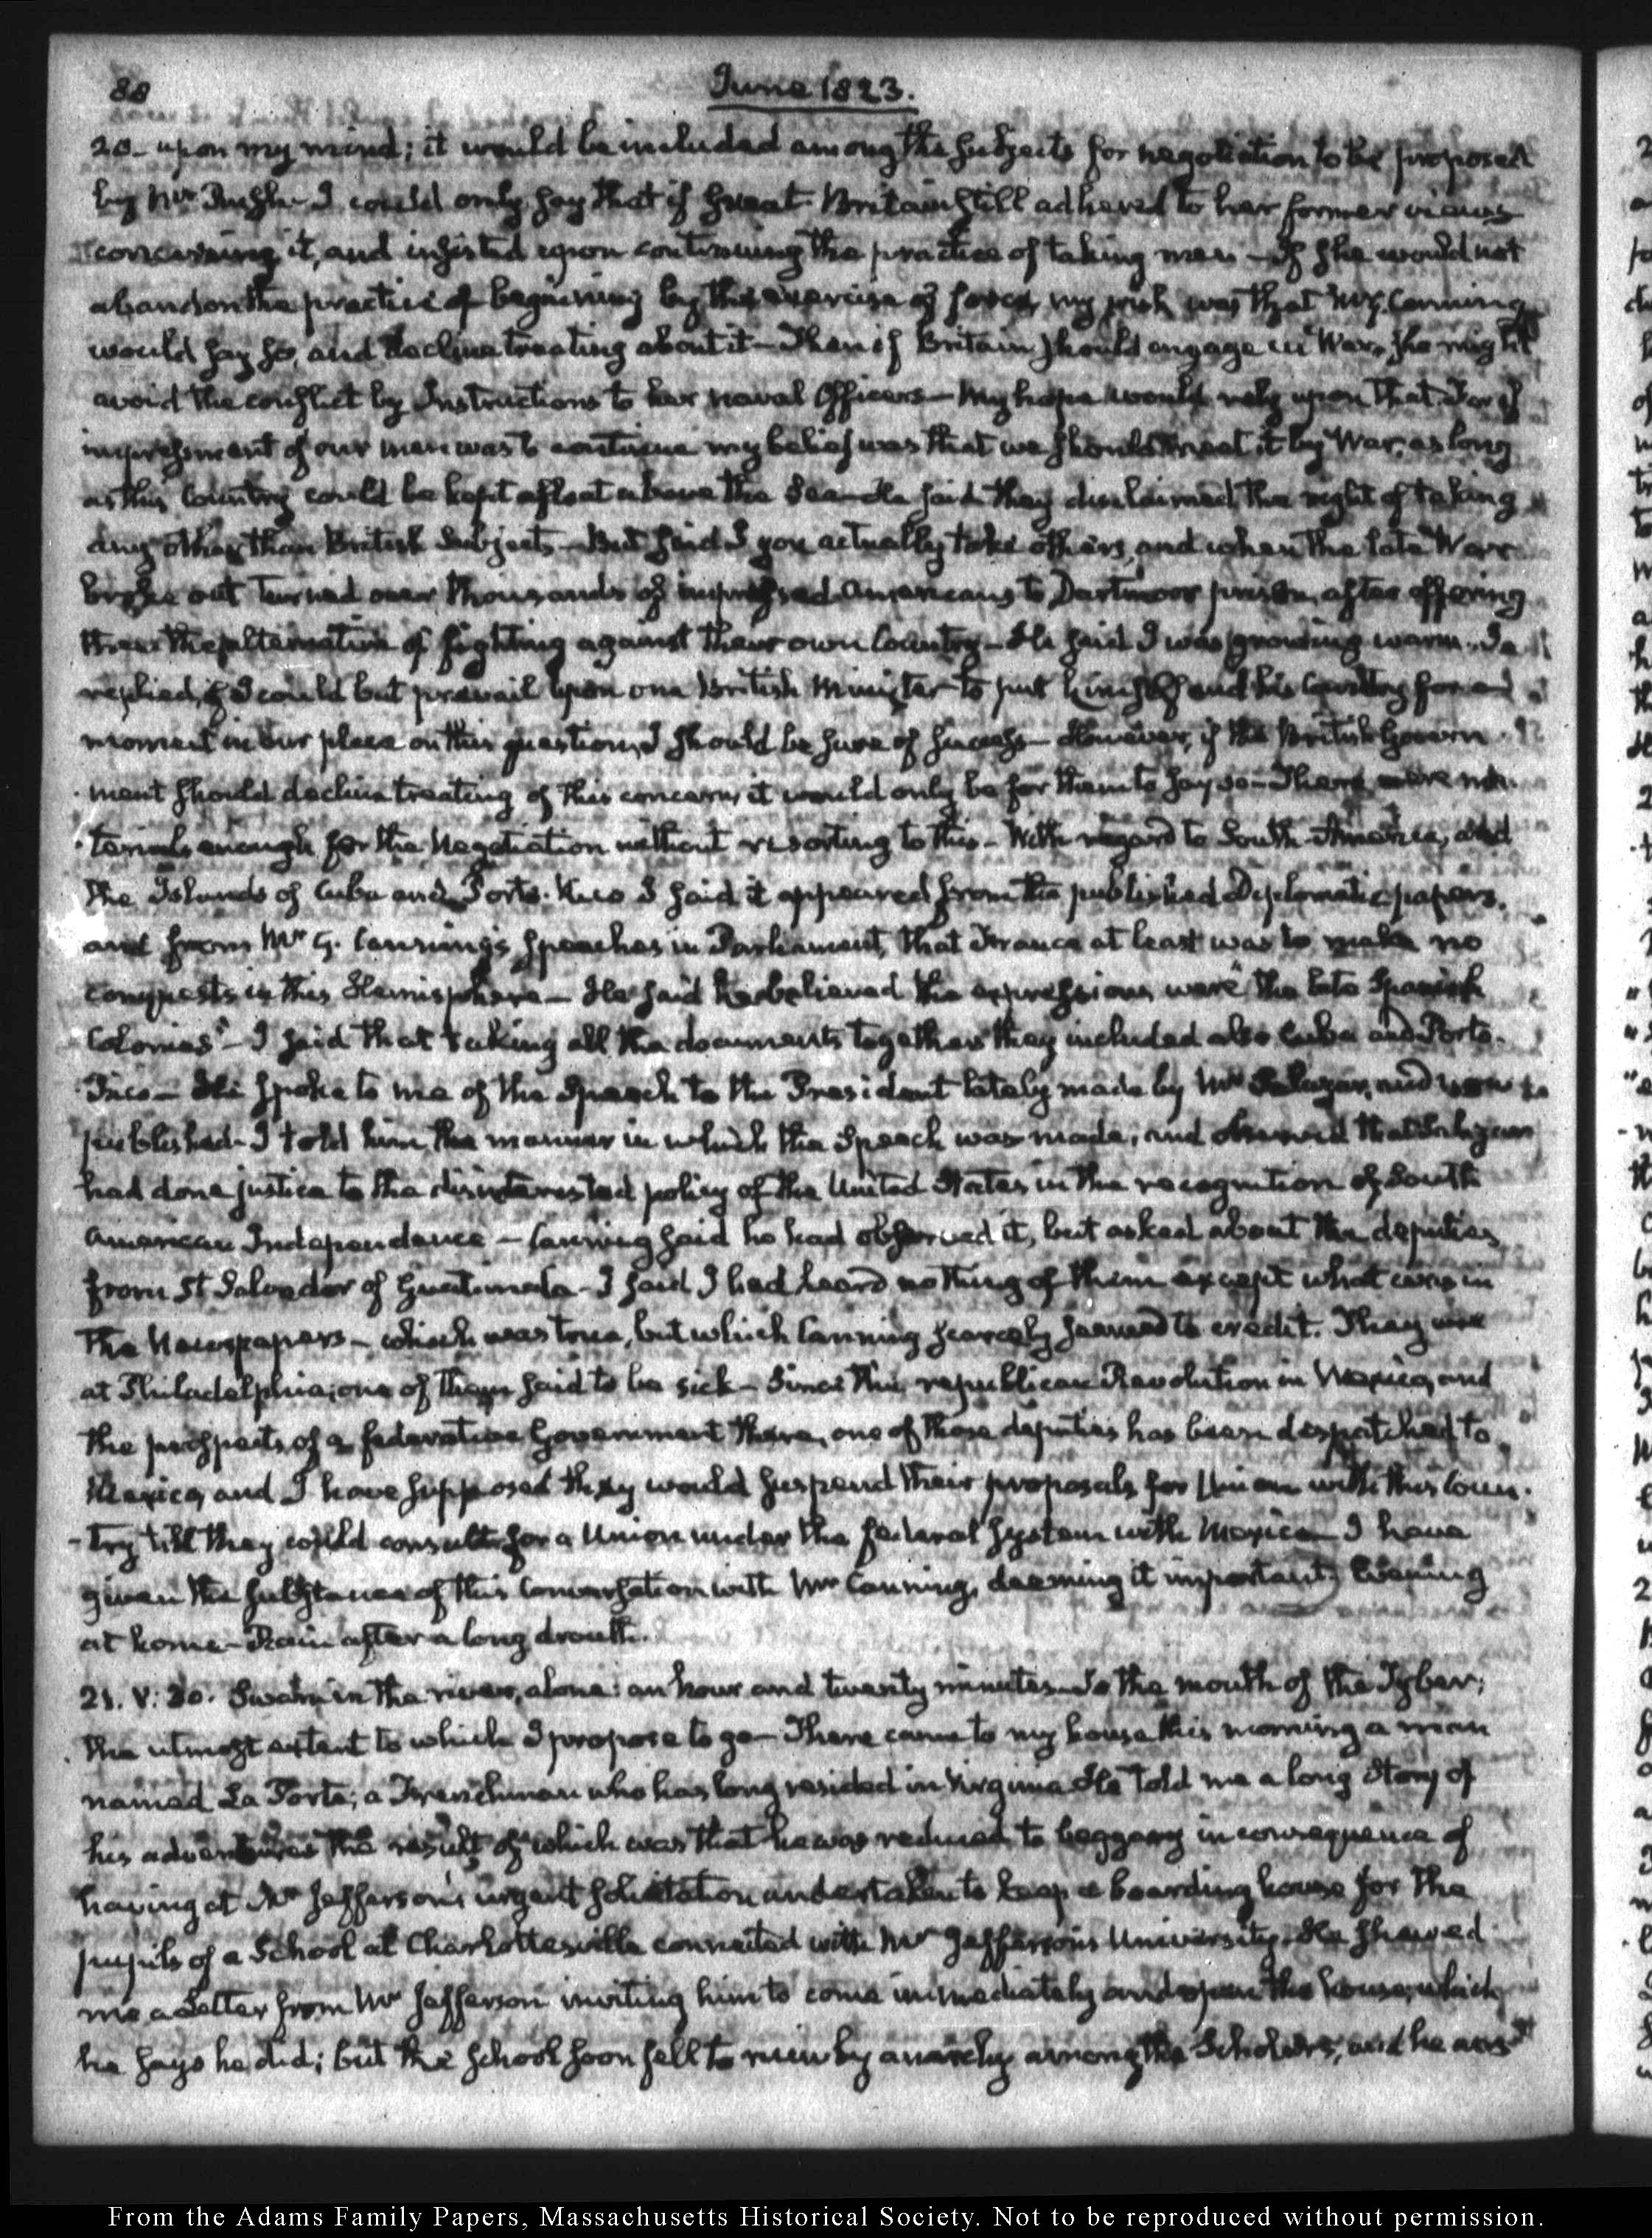 88
June 1823.
20- upon my mind; it would be included among the subjects for negotiation to be proposed
by Mr Rush- I could only say that if Great Britain still adhered to her former views
concerning it, and insisted upon continuing the practice of taking men - If she would not
abandon the practice of beginning by the exercise of force, my wish was that Mr G. Canning
would say so, and decline treating about it- Then if Britain should engage in War, she might
avoid the conflict by Instructions to her naval Officers- My hope would rely upon that. For if
impressment of our men was to continue my belief was that we should meet it by War, as long
as this Country could be kept afloat above the Sea- He said they disclaimed the right of taking
any other than British Subjects- But said I you actually take others, and when the late War
broke out turned over thousands of impressed Americans to Dartmoor prison, after offering
them the alternative of fighting against their own Country- He said I was growing warm. I
replied, if I could but prevail upon one British Minister to put himself and his Country for a
moment in our place on this question, I should be sure of success- However, if the British Govern-
ment should decline treating of this concern, it would only be for them to say so- There were ma-
terials enough for the Negotiation without resorting to this- With regard to South-America, and
the Islands of Cuba and Porto-Rico I said it appeared from the published Diplomatic papers,
and from Mr G. Canning's speeches in Parliament, that France at least was to make no
conquests in this Hemisphere- He said he believed the expressions were "the late Spanish
Colonies"- I said that taking all the documents together they included also Cuba and Porto-
Rico- He spoke to me of the Speech to the President lately made by Mr Salazar, and now
published- I told him the manner in which the Speech was made, and observed that Salazar
had done justice to the disinterested policy of the United States in the recognition of South
American Independence - Canning said he had observed it, but asked about the deputies
from St Salvador of Guatimala- I said I had heard nothing of them except what was in
the Newspapers- which was true, but which Canning scarcely seemed to credit. They were
at Philadelphia; one of them said to be sick- Since this republican Revolution in Mexico, and
the prospects of a federative Government there, one of those deputies has been despatched to
Mexico, and I have supposed they would suspend their proposals for Union with this Coun-
-try till they could consult for a Union under the federal system with Mexico- I have
given the substance of this Conversation with Mr Canning, deeming it important) Evening
at home- Rain after a long drouth.
21. V:30. Swam in the river, alone: an hour and twenty minutes- To the mouth of the Tyber;
the utmost extent to which I propose to go- There came to my house this morning a man
named La Porte; a Frenchman who has long resided in Virginia- He told me a long story of
his adventures the result of which was that he was reduced to beggary in consequence of
having at Mr Jefferson's urgent solicitation undertaken to keep a boarding house for the
pupils of a School at Charlottesville connected with Mr Jefferson's University. He shewed
me a Letter from Mr Jefferson inviting him to come immediately and open the house, which
he says he did; but the school soon fell to ruin by anarchy among the Scholars; and he
From the Adams Family Papers, Massachusetts Historical Society. Not to be reproduced without permission.